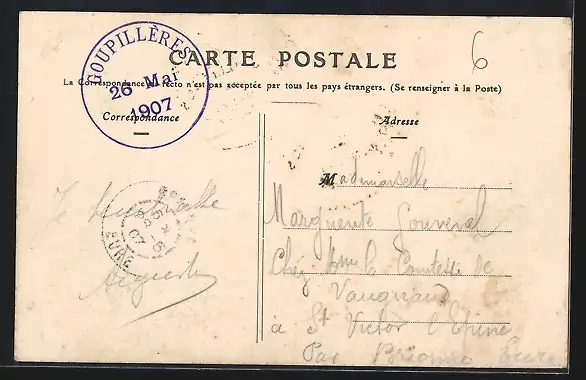 GOUPILLÈRES
26 Mai
1907
6
CARTE POSTALE
La Correspondance recto n'est pas acceptée par tous les pays étrangers. (Se renseigner à la Poste)
Correspondance
Adresse
Mademoiselle
Marguerite
Chez Mme la Comtesse de
à St Victor l'Epine
Par Brionne Eure
Je
EURE
07